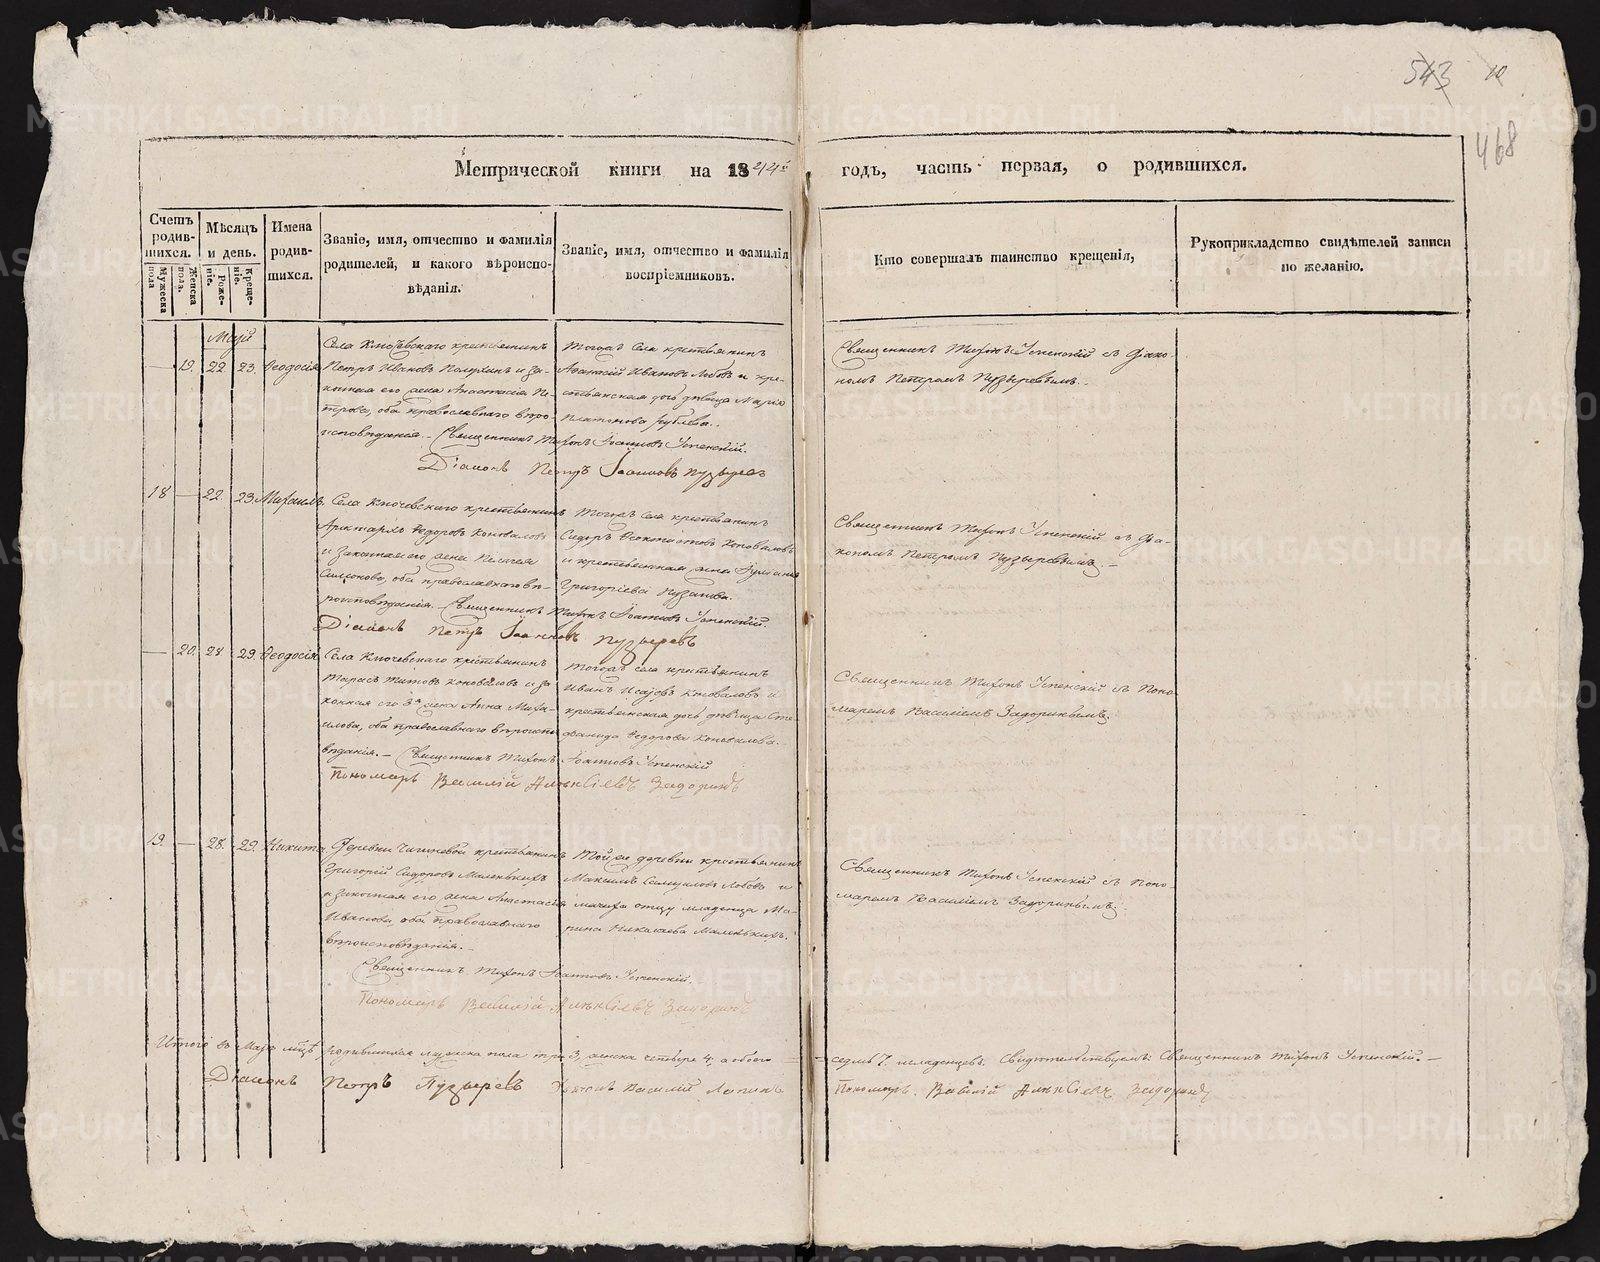 543 10
468
Метрической книги на 1844й годъ, часть первая, о родившихся.
Счетъ родив-шихся.
Мужеска пола
Женска пола.
Мѣсяцъ и день.
Роже-ніе.
Креще-ніе.
Имена родив-шихся.
Званіе, имя, отчество и фамилія
родителей, и какого вѣроиспо-
вѣданія.
Званіе, имя, отчество и фамилія
воспріемниковъ.
Кто совершалъ таинство крещенія,
Рукоприкладство свидѣтелей записи
по желанію.
Маій
— 19. 22 23. Ѳеодосія
Села Ключевскаго крестьянинъ
Петръ Ивановъ и за-
конная его жена Анастасія Пе-
трова, оба православнаго вѣро-
исповѣданія. — Священникъ Тихонъ Іоанновъ Успенскій.
Діаконъ Петръ Іоанновъ Пузыревъ
Тогожъ села крестьянинъ
Аѳанасій Ивановъ Лобовъ и кре-
стьянская дочь дѣвица Марія
Платонова
Священникъ Тихонъ Успенскій съ Діако-
номъ Петромъ Пузыревымъ. —
18 — 22. 23. Михаилъ.
Села Ключевскаго крестьянинъ
Аристархъ Ѳедоровъ Коноваловъ
и законная его жена Пелагея
Симеонова, оба православнаго вѣ-
роисповѣданія. — Священникъ Тихонъ Іоанновъ Успенскій.
Діаконъ Петръ Іоанновъ Пузыревъ
Тогожъ села крестьянинъ
Сидоръ Ѳеоктистовъ Коноваловъ
и крестьянская жена
Григоріева
Священникъ Тихонъ Успенскій съ Діа-
кономъ Петромъ Пузыревымъ —
— 20. 28 29. Ѳеодосія
Села Ключевскаго крестьянинъ
Тарасъ Титовъ Коноваловъ и за-
конная его жена Анна Миха-
илова, оба православнаго вѣроиспо-
вѣданія. — Священникъ Тихонъ Іоанновъ Успенскій
Пономарь Василій Алексіевъ Задоринъ
Тогожъ села крестьянинъ
Иванъ Исаевъ Коноваловъ и
крестьянская дочь дѣвица Сте-
фанида Ѳедорова Коновалова.
Священникъ Тихонъ Успенскій съ Поно-
маремъ Василіемъ Задоринымъ.
19. — 28. 29. Никита
Деревни крестьянинъ
Григорій Сидоровъ Маленькихъ
и законная его жена Анастасія
Иванова, оба православнаго
вѣроисповѣданія. —
Священникъ Тихонъ Іоанновъ Успенскій.
Пономарь Василій Алексіевъ Задоринъ
Той же деревни крестьянинъ
Максимъ Самуиловъ Лобовъ и
мачиха отцу младенца Ма-
рина Николаева Маленькихъ.
Священникъ Тихонъ Успенскій съ Поно-
маремъ Василіемъ Задоринымъ.
Итого въ Маѣ мцѣ родившихся мужеска пола три 3, женска четыре 4, а обоего — седмь 7. младенцевъ. Свидѣтельствуемъ: Священникъ Тихонъ Успенскій. —
Діаконъ Петръ Пузыревъ Василій Пономарь Василій Алексіевъ Задоринъ